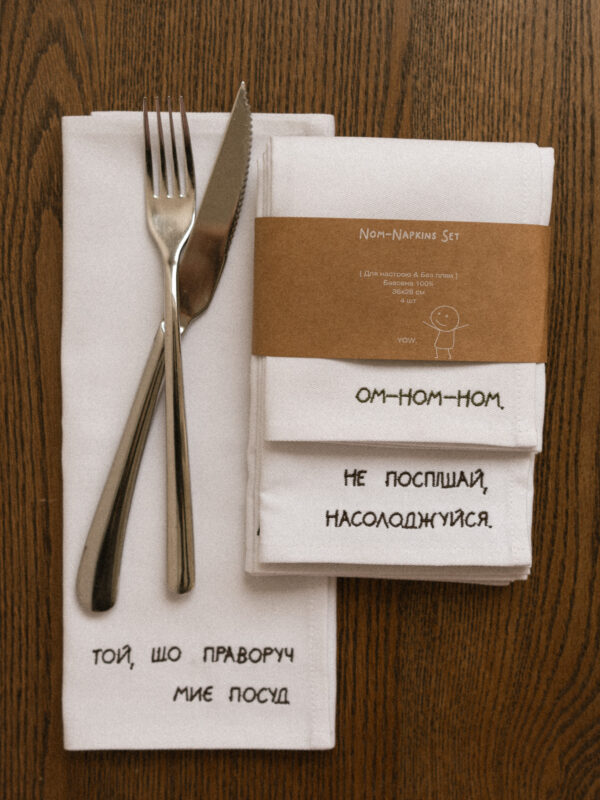 NOM-NAPKINS SET
[ Для настрою & Без плям ]
Бавовна 100%
36x28 см
4 шт
YOW.
ОМ-НОМ-НОМ.
НЕ ПОСПІШАЙ,
НАСОЛОДЖУЙСЯ.
ТОЙ, ЩО ПРАВОРУЧ
МИЄ ПОСУД